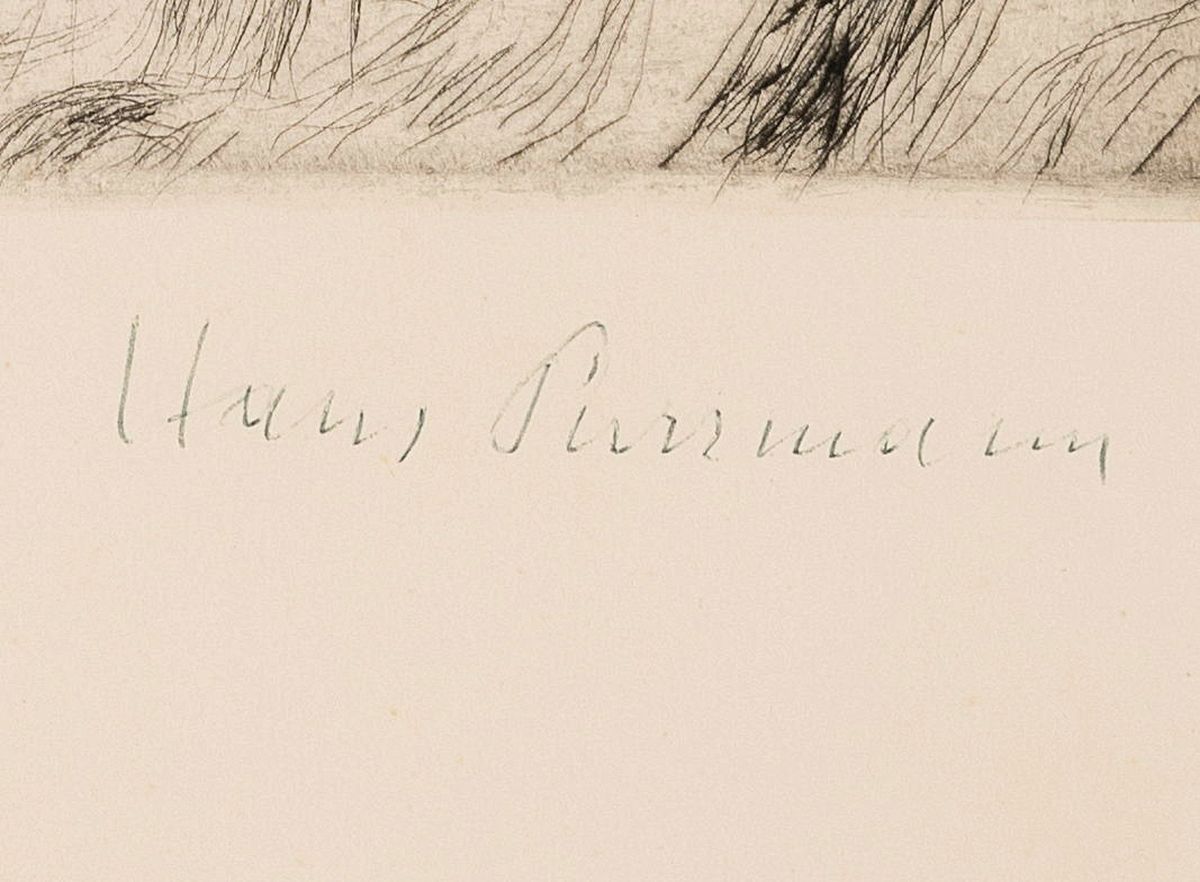 Hans Purrmann